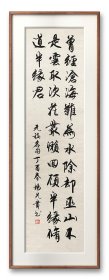 曾經滄海難為水除却巫山不
是雲取次花叢懶回顧半緣修
道半緣君
元稹 丁酉春